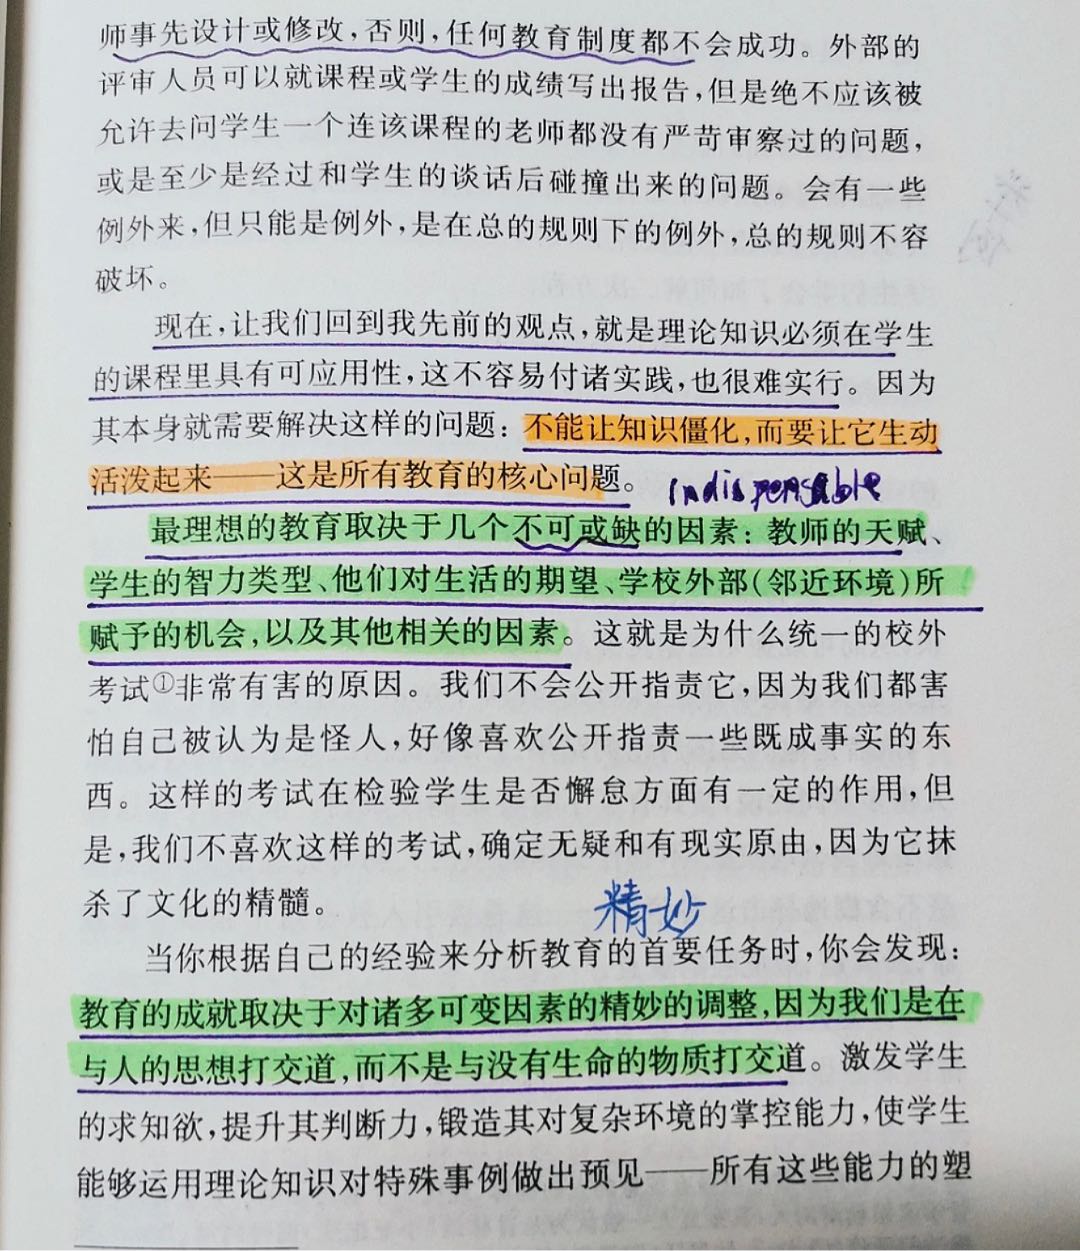 师事先设计或修改，否则，任何教育制度都不会成功。外部的
评审人员可以就课程或学生的成绩写出报告，但是绝不应该被
允许去问学生一个连该课程的老师都没有严苛审察过的问题，
或是至少是经过和学生的谈话后碰撞出来的问题。会有一些
例外来，但只能是例外，是在总的规则下的例外，总的规则不容
破坏。
现在，让我们回到我先前的观点，就是理论知识必须在学生
的课程里具有可应用性，这不容易付诸实践，也很难实行。因为
其本身就需要解决这样的问题：不能让知识僵化，而要让它生动
活泼起来——这是所有教育的核心问题。
indispensable
最理想的教育取决于几个不可或缺的因素：教师的天赋、
学生的智力类型、他们对生活的期望、学校外部（邻近环境）所
赋予的机会，以及其他相关的因素。这就是为什么统一的校外
考试①非常有害的原因。我们不会公开指责它，因为我们都害
怕自己被认为是怪人，好像喜欢公开指责一些既成事实的东
西。这样的考试在检验学生是否懈怠方面有一定的作用，但
是，我们不喜欢这样的考试，确定无疑和有现实原由，因为它抹
杀了文化的精髓。
精妙
当你根据自己的经验来分析教育的首要任务时，你会发现：
教育的成就取决于对诸多可变因素的精妙的调整，因为我们是在
与人的思想打交道，而不是与没有生命的物质打交道。激发学生
的求知欲，提升其判断力，锻造其对复杂环境的掌控能力，使学生
能够运用理论知识对特殊事例做出预见——所有这些能力的塑